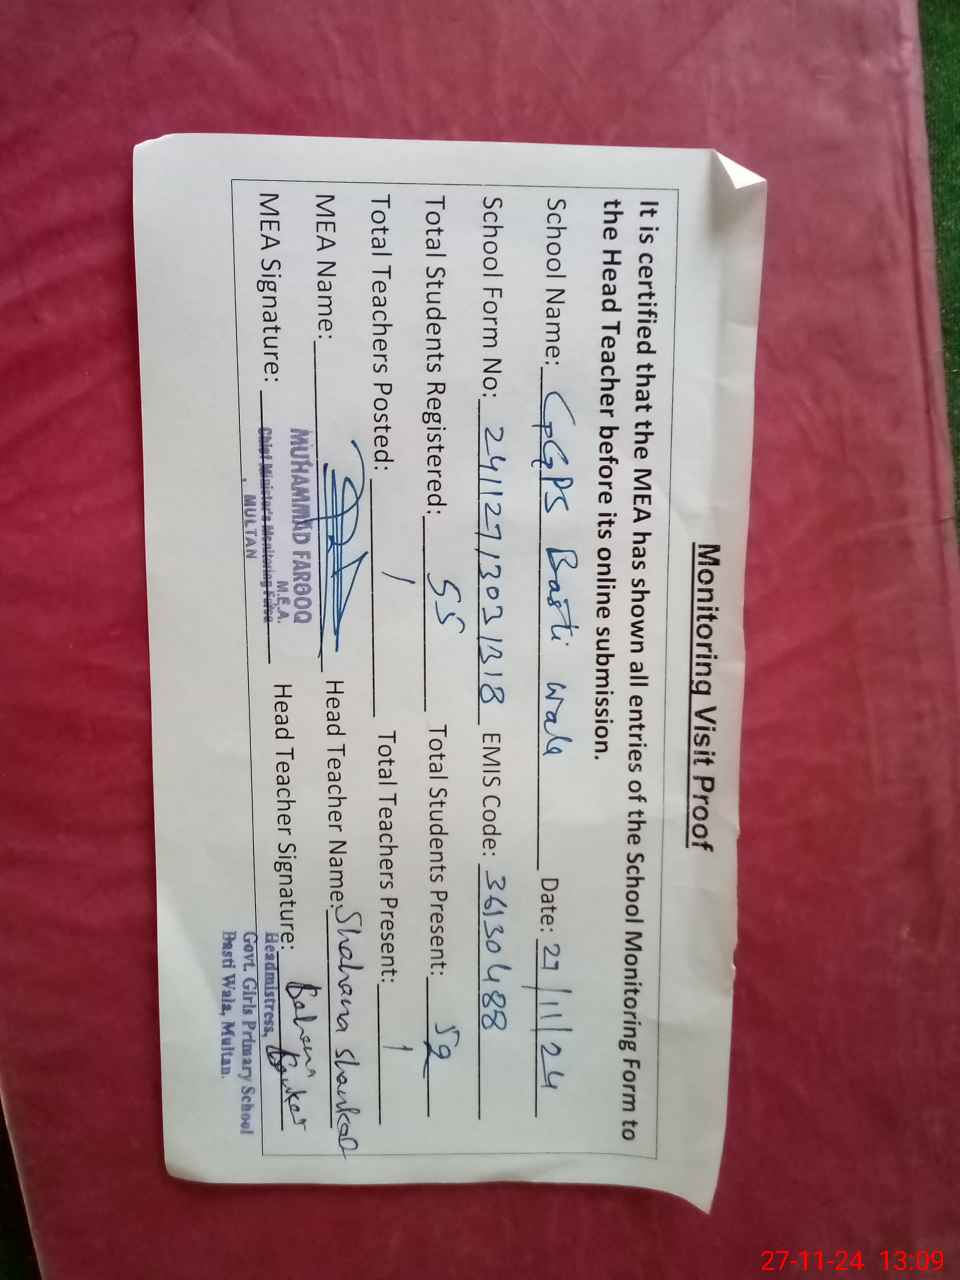 Monitoring Visit Proof
It is certified that the MEA has shown all entries of the School Monitoring Form to
the Head Teacher before its online submission.
School Name: GGPS Basti Wala Date: 27/11/24
School Form No: 241127130318 EMIS Code: 36130488
Total Students Registered: 55 Total Students Present: 52
Total Teachers Posted: 1 Total Teachers Present: 1
MEA Name: Head Teacher Name: Shahana
MUHAMMAD FAROOQ
M.E.A.
MEA Signature: Head Teacher Signature:
Chief Minister's Monitoring Force
MULTAN
Headmistress,
Govt. Girls Primary School
Basti Wala, Multan.
27-11-24 13:09